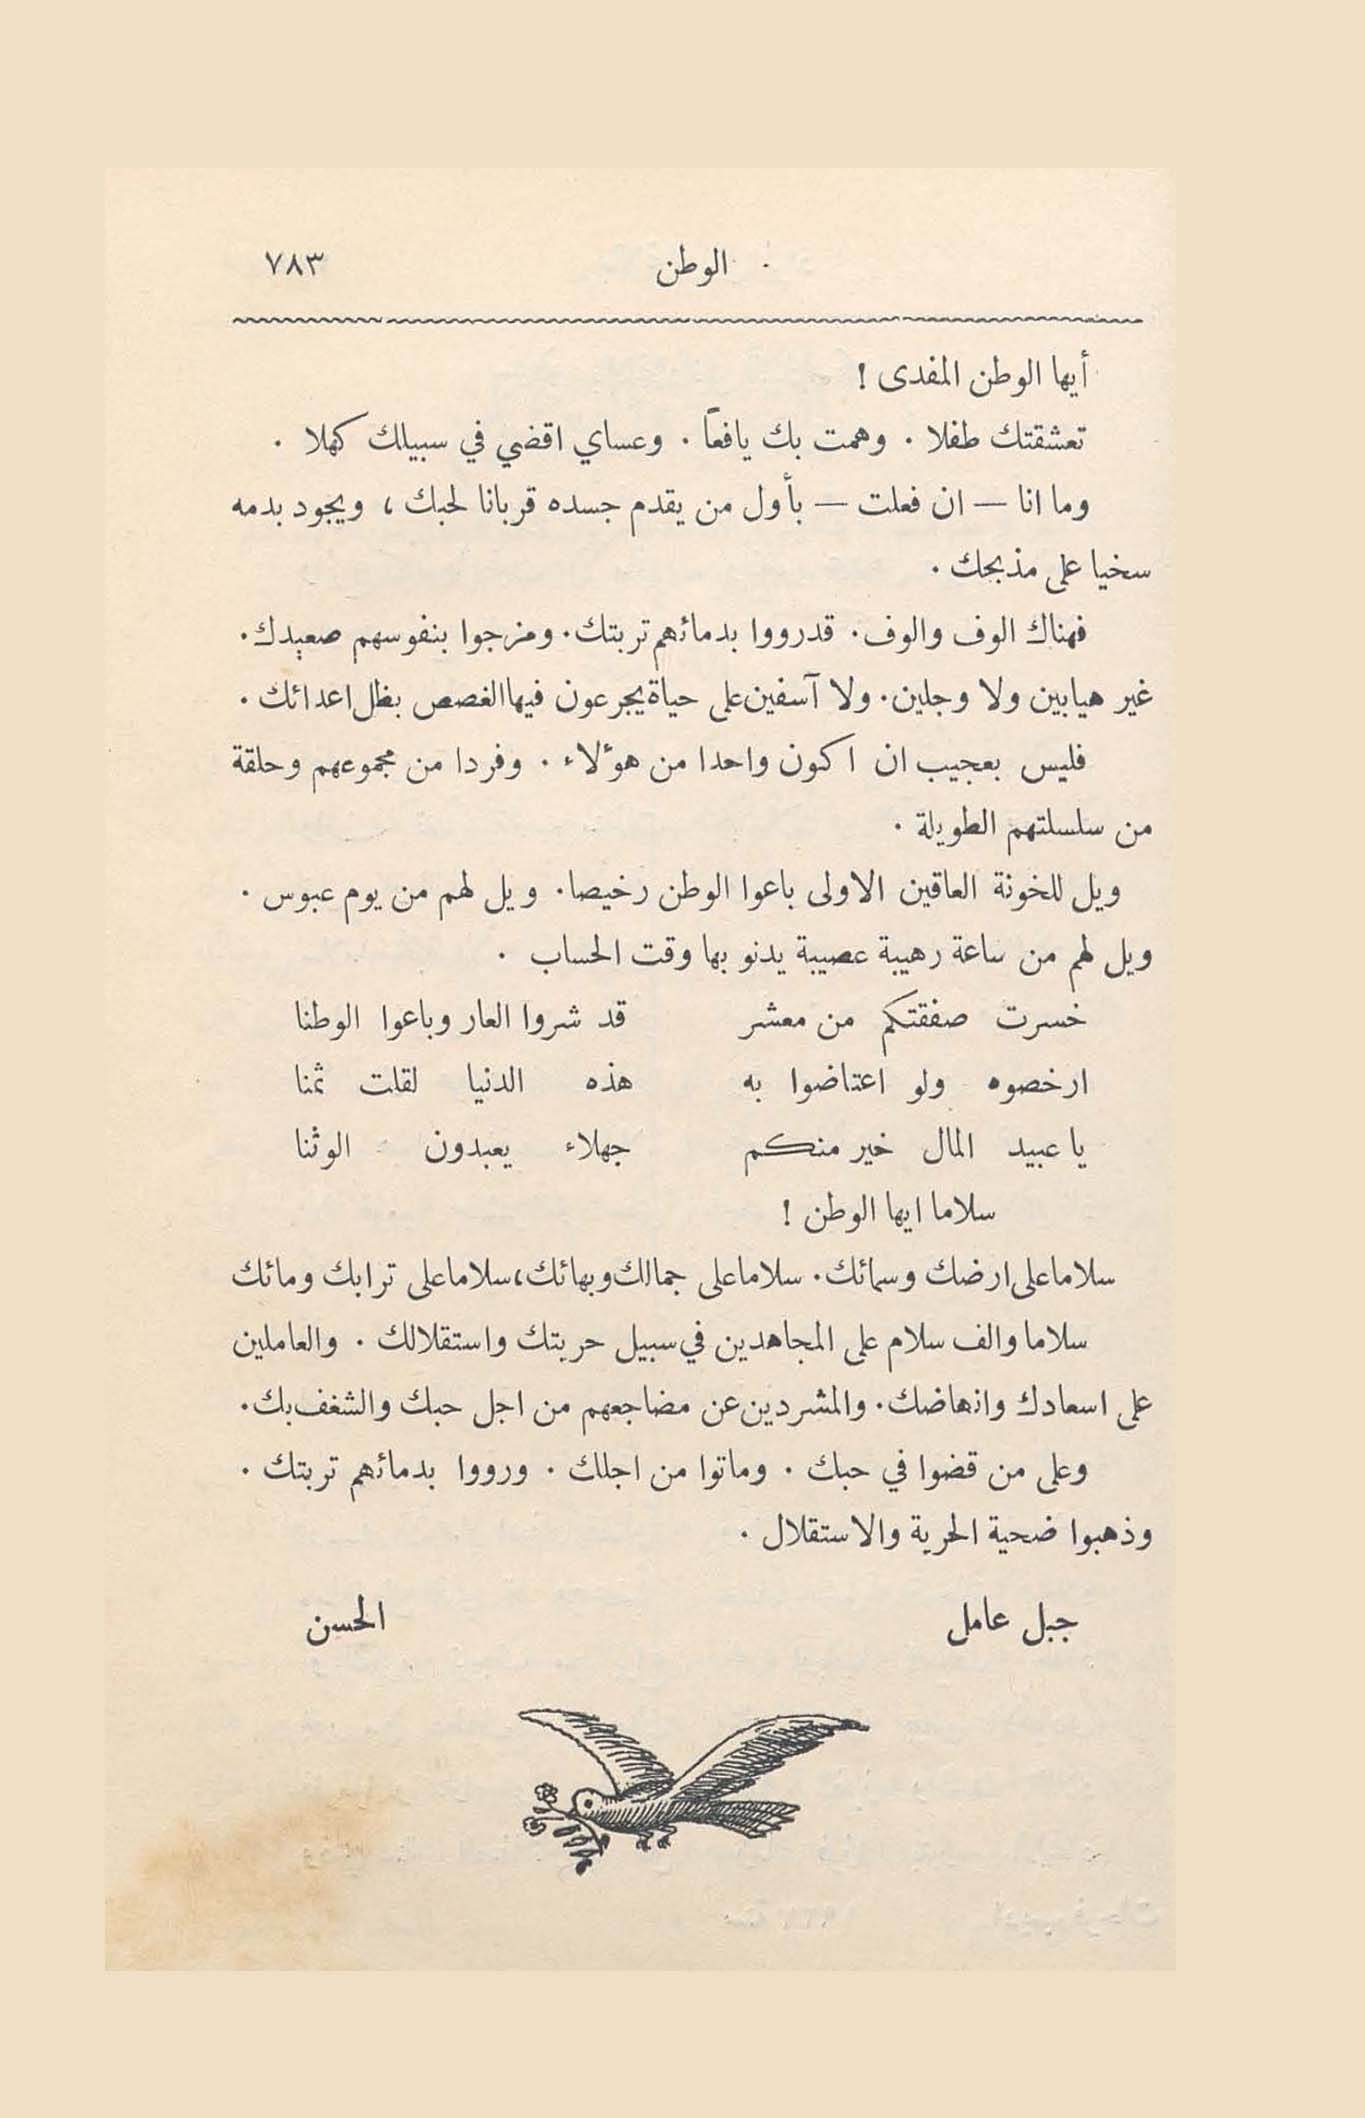 الوطن ٧٨٣
أيها الوطن المفدى !
تعشقتك طفلا . وهمت بك يافعاً . وعساي اقضي في سبيلك كهلا .
وما انا — ان فعلت — بأول من يقدم جسده قربانا لحبك ، ويجود بدمه
سخيا على مذبحك .
فهناك الوف والوف . قدرووا بدمائهم تربتك . ومزجوا بنفوسهم صعيدك .
غير هيابين ولا وجلين . ولا آسفين على حياة يجرعون فيها الغصص بظل اعدائك .
فليس بعجيب ان اكون واحدا من هؤلاء . وفردا من مجموعهم وحلقة
من سلسلتهم الطويلة .
ويل للخونة العاقين الاولى باعوا الوطن رخيصا . ويل لهم من يوم عبوس .
ويل لهم من ساعة رهيبة عصيبة يدنو بها وقت الحساب .
خسرت صفقتكم من معشر قد شروا العار وباعوا الوطنا
ارخصوه ولو اعتاضوا به هذه الدنيا لقلت ثمنا
يا عبيد المال خير منكم جهلاء يعبدون الوثنا
سلاما ايها الوطن !
سلاما على ارضك وسمائك . سلاما على جمالك وبهائك ، سلاما على ترابك ومائك
سلاما والف سلام على المجاهدين في سبيل حريتك واستقلالك . والعاملين
على اسعادك وانهاضك . والمشردين عن مضاجعهم من اجل حبك والشغف بك .
وعلى من قضوا في حبك . وماتوا من اجلك . ورووا بدمائهم تربتك .
وذهبوا ضحية الحرية والاستقلال .
جبل عامل الحسن